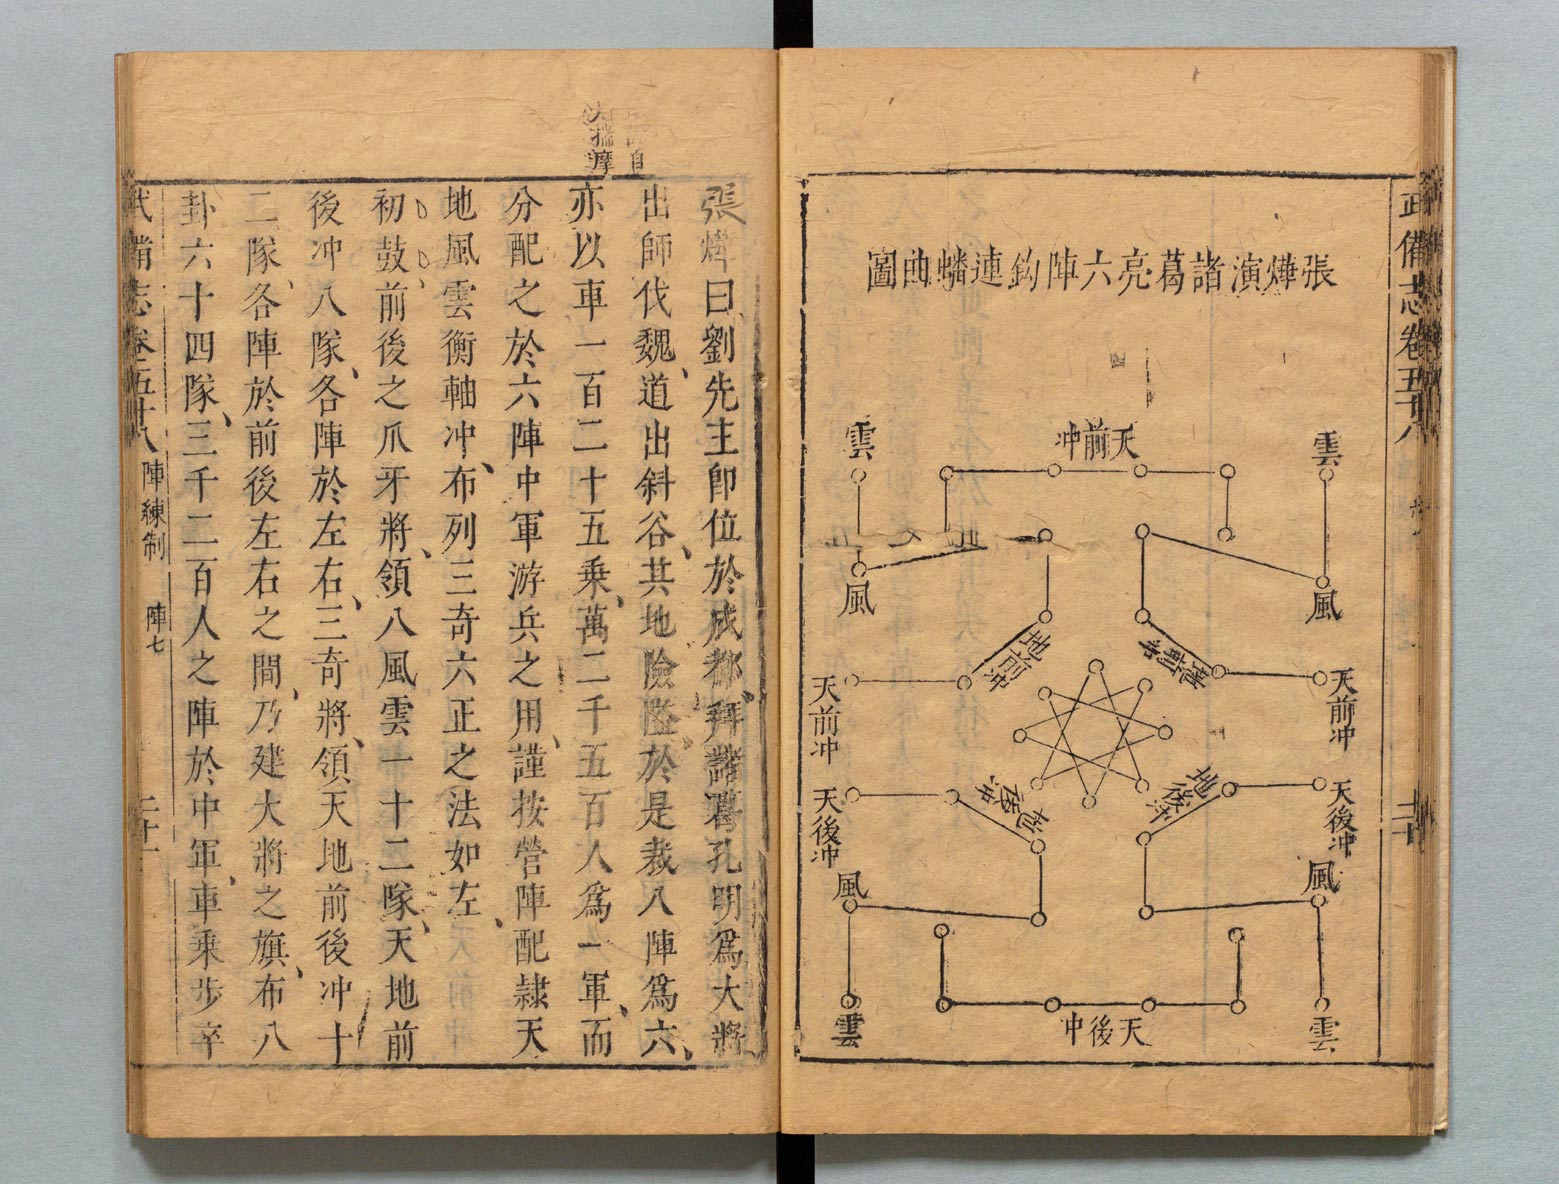 武備志卷五十八
張燁演諸葛亮六陣鈎連蟠曲圖
天前冲
雲
雲
風
風
地前冲
地前冲
天前冲
天前冲
天後冲
天後冲
地後冲
地後冲
風
風
雲
雲
天後冲
張燁曰劉先主卽位於成都、拜諸葛孔明爲大將
出師伐魏、道出斜谷、其地險隘、於是裁八陣爲六、
亦以車一百二十五乘、萬二千五百人爲一軍、而
分配之於六陣中軍游兵之用、謹按營陣配隷天
地風雲衡軸冲、布列三奇六正之法如左、
初鼓、前後之爪牙將、領八風雲一十二隊、天地前
後冲八隊、各陣於左右、三奇將、領天地前後冲十
二隊、各陣於前後左右之間、乃建大將之旗、布八
卦六十四隊、三千二百人之陣於中軍、車乘步卒
武備志卷五十八
陣練制
陣七
二十一
揣摩